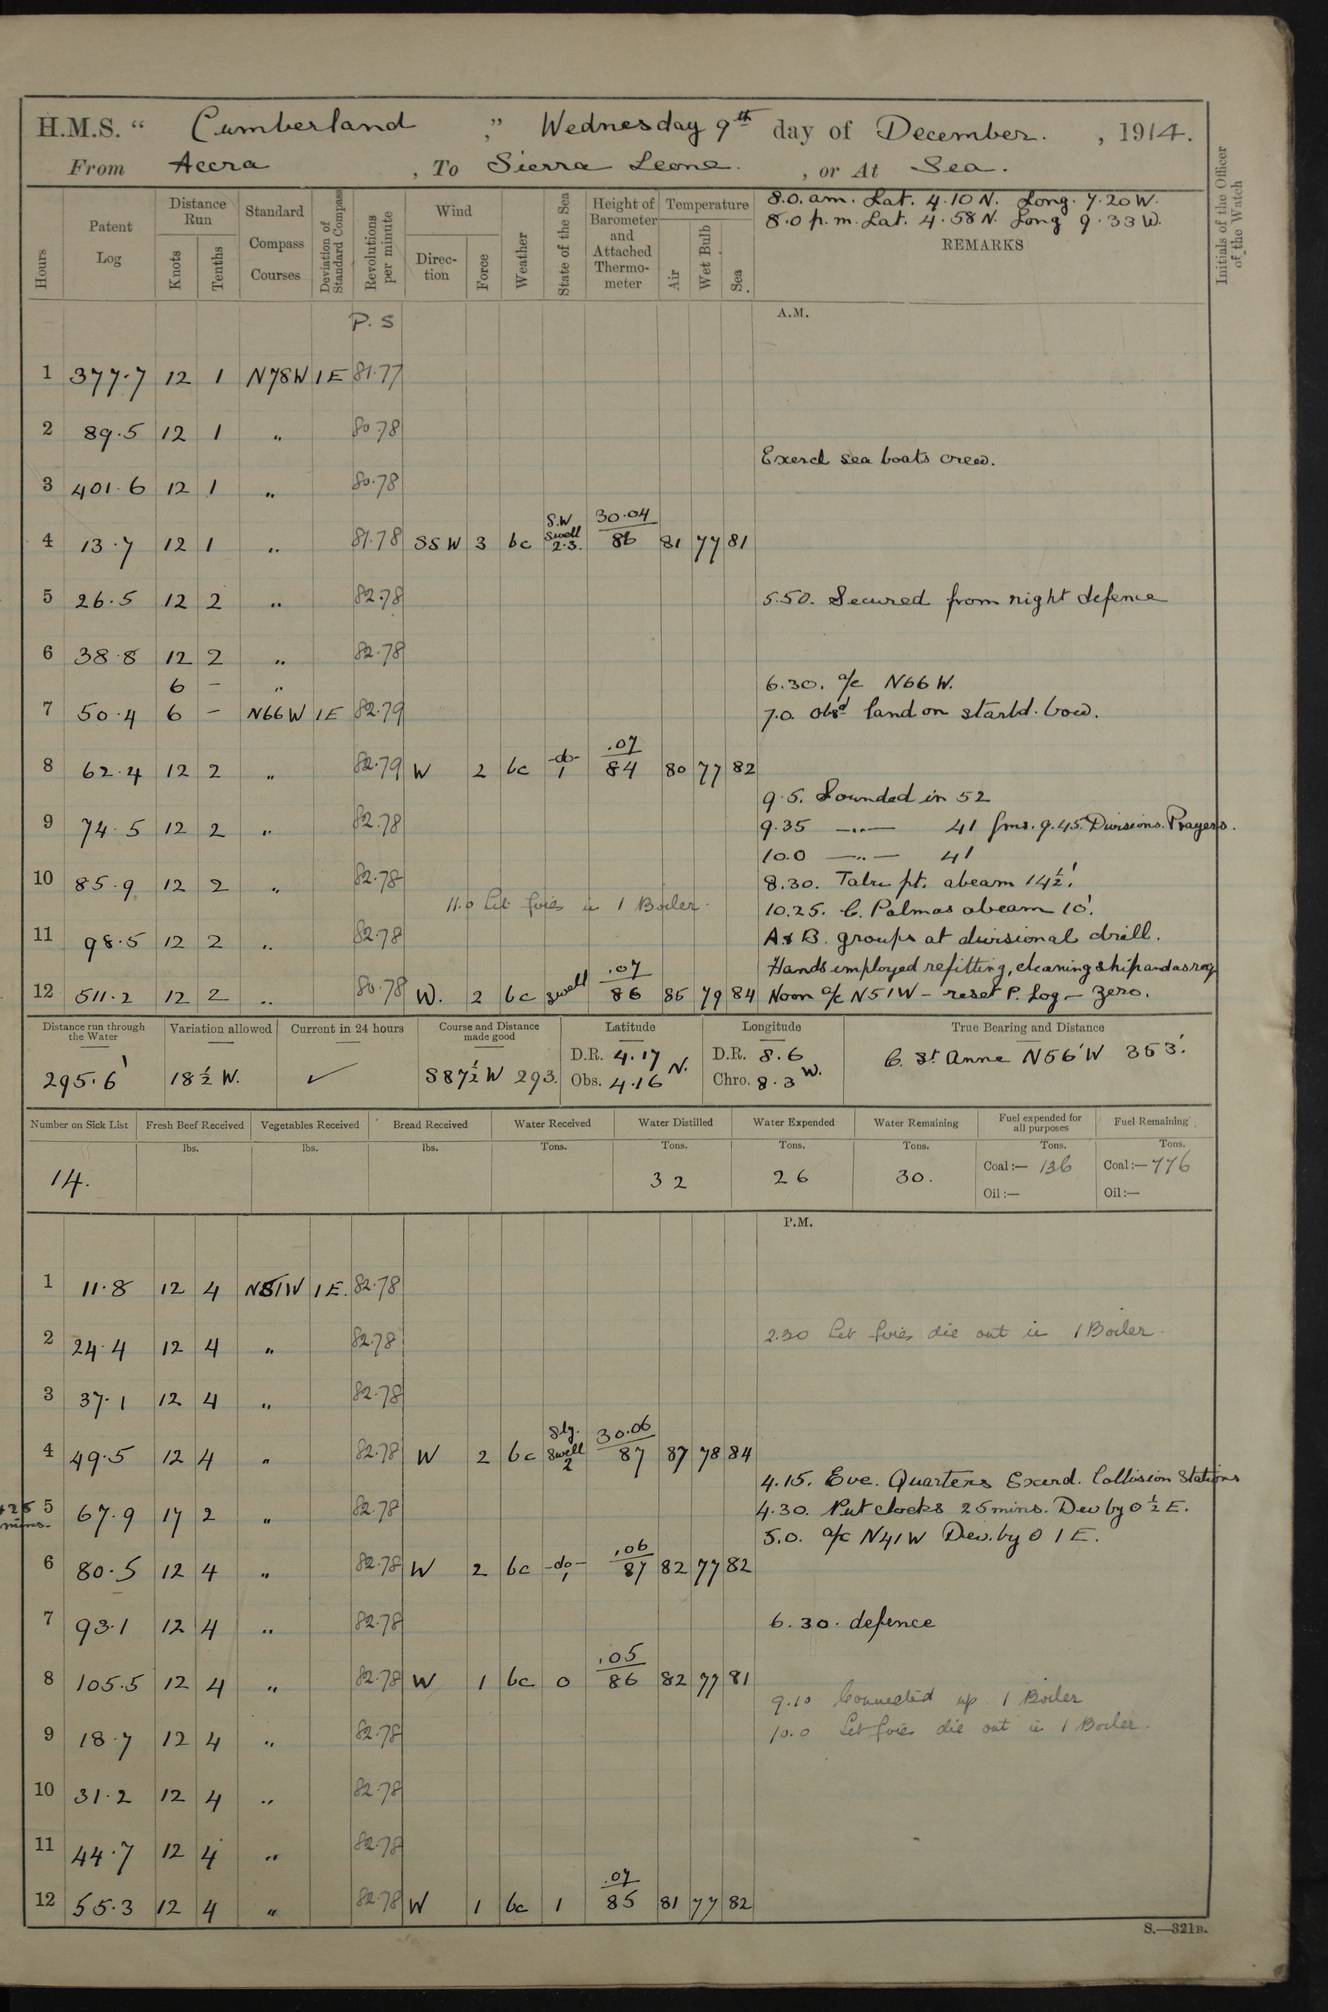 H.M.S. " Cumberland ," Wednesday 9th day of December. , 1914.
From Accra , To Sierra Leone. , or At Sea.
Initials of the Officer of the Watch
Hours
Patent Log
Distance Run
Knots
Tenths
Standard Compass Courses
Deviation of Standard Compass
Revolutions per minute
Wind
Direction
Force
Weather
State of the Sea
Height of Barometer and Attached Thermometer
Temperature
Air
Wet Bulb
Sea
8.0. am. Lat. 4.10 N. Long. 7.20 W.
8.0 p.m. Lat. 4.58 N. Long 9.33 W.
REMARKS
P. S
A.M.
1 377.7 12 1 N78W 1E 81.77
2 89.5 12 1 " 80.78
Exercd sea boats crew.
3 401.6 12 1 " 80.78
4 13.7 12 1 " 81.78 SSW 3 bc S.W swell 2.3. 30.04 86 81 77 81
5 26.5 12 2 " 82.78 5.50. Secured from night defence
6 38.8 12 2 " 82.78
6 - " 6.30. a/c N66W.
7 50.4 6 - N66W 1E 82.79 7.0. Obsd land on starbd. bow.
8 62.4 12 2 " 82.79 W 2 bc -do- 1 .07 84 80 77 82
9.5. Sounded in 52
9 74.5 12 2 " 82.78 9.35 —"— 41 fms. 9.45. Divisions. Prayers.
10.0 —"— 41
10 85.9 12 2 " 82.78 8.30. pt. abeam 14½'.
11.0 Lit fires in 1 Boiler. 10.25. C. Palmas abeam 10'.
11 98.5 12 2 " 82.78 A & B. groups at divisional drill.
Hands employed refitting, cleaning ship and as req
12 511.2 12 2 " 80.78 W. 2 bc swell .07 86 85 79 84 Noon a/c N51W - reset P. Log - Zero.
Distance run through the Water
Variation allowed
Current in 24 hours
Course and Distance made good
Latitude
Longitude
True Bearing and Distance
295.6' 18½ W. ✓ S87½W 293. D.R. 4.17 Obs. 4.16 N. D.R. 8.6 Chro. 8.3 W. C. St. Anne N56°W 353'.
Number on Sick List
Fresh Beef Received
Vegetables Received
Bread Received
Water Received
Water Distilled
Water Expended
Water Remaining
Fuel expended for all purposes
Fuel Remaining
lbs. lbs. lbs. Tons. Tons. Tons. Tons. Tons. Tons.
14. 32 26 30. Coal:— 136 Coal:— 776
Oil:— Oil:—
P.M.
1 11.8 12 4 N51W 1E. 82.78
2 24.4 12 4 " 82.78 2.30 Let fires die out in 1 Boiler.
3 37.1 12 4 " 82.78
4 49.5 12 4 " 82.78 W 2 bc Sly. swell 2 30.06 87 87 78 84
4.15. Eve. Quarters Exercd. Collision Stations
+25 mins. 5 67.9 17 2 " 82.78 4.30. Put clocks 25 mins. Dev by ʘ ½ E.
5.0. a/c N41W Dev. by ʘ 1 E.
6 80.5 12 4 " 82.78 W 2 bc -do- 1 .06 87 82 77 82
7 93.1 12 4 " 82.78 6.30. defence
8 105.5 12 4 " 82.78 W 1 bc 0 .05 86 82 77 81
9.10 Connected up 1 Boiler
10.0 Let fires die out in 1 Boiler.
9 18.7 12 4 " 82.78
10 31.2 12 4 " 82.78
11 44.7 12 4 " 82.78
12 55.3 12 4 " 82.78 W 1 bc 1 .07 85 81 77 82
S.—321B.